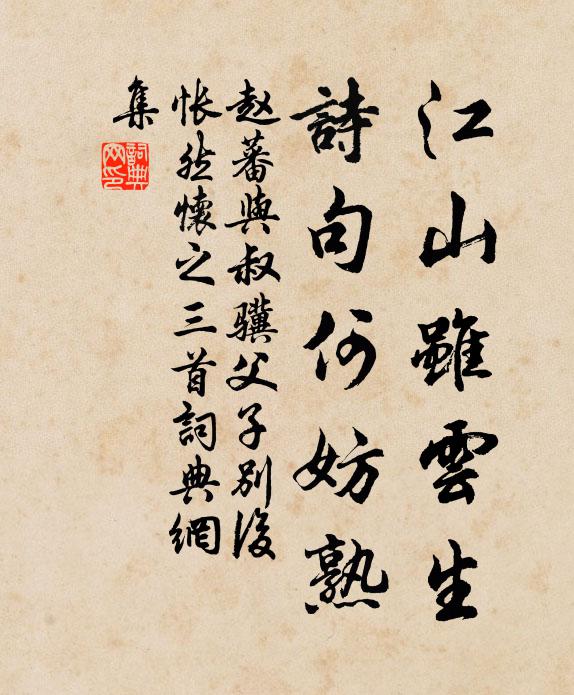 江山雖雲生
詩句何妨熟
赵蕃與叔驥父子別後
怅然懷之三首詞典網
集
詞典
网印